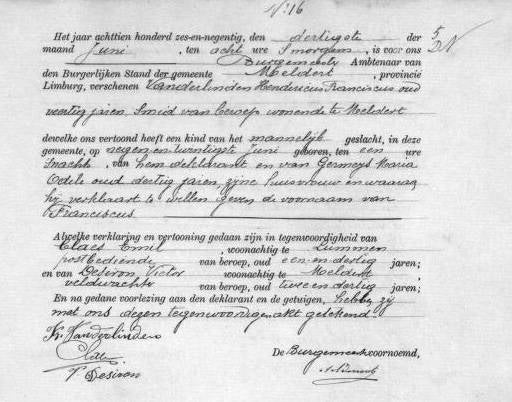 N° 16
Het jaar achttien honderd zes-en-negentig, den dertigste der
maand Juni, ten acht ure s'morgens, is voor ons
Burgemeester Ambtenaar van
den Burgerlijken Stand der gemeente Meldert, provincie
Limburg, verschenen Vanderlinden Hendricus Franciscus oud
veertig jaren, Smid van beroep wonende te Meldert
dewelke ons vertoond heeft een kind van het mannelijk geslacht, in deze
gemeente, op negen-en-twintigste Juni geboren, ten een ure
snachts, van hem deklarant en van Germeys Maria
Odile oud dertig jaren, zijne huisvrouw en waaraan
hij verklaart te willen geven de voornaam van
Franciscus.
Alwelke verklaring en vertooning gedaan zijn in tegenwoordigheid van
Claes Emil, woonachtig te Lummen
postbediende van beroep, oud een-en-dertig jaren;
en van Desiron, Victor woonachtig te Meldert
veldwachter van beroep, oud twee en dertig jaren;
En na gedane voorlezing aan den deklarant en de getuigen, hebben zij
met ons dezen tegenwoordigen akt geteekend.
H. Vanderlinden
Claes
V Desiron
De Burgemeester voornoemd,